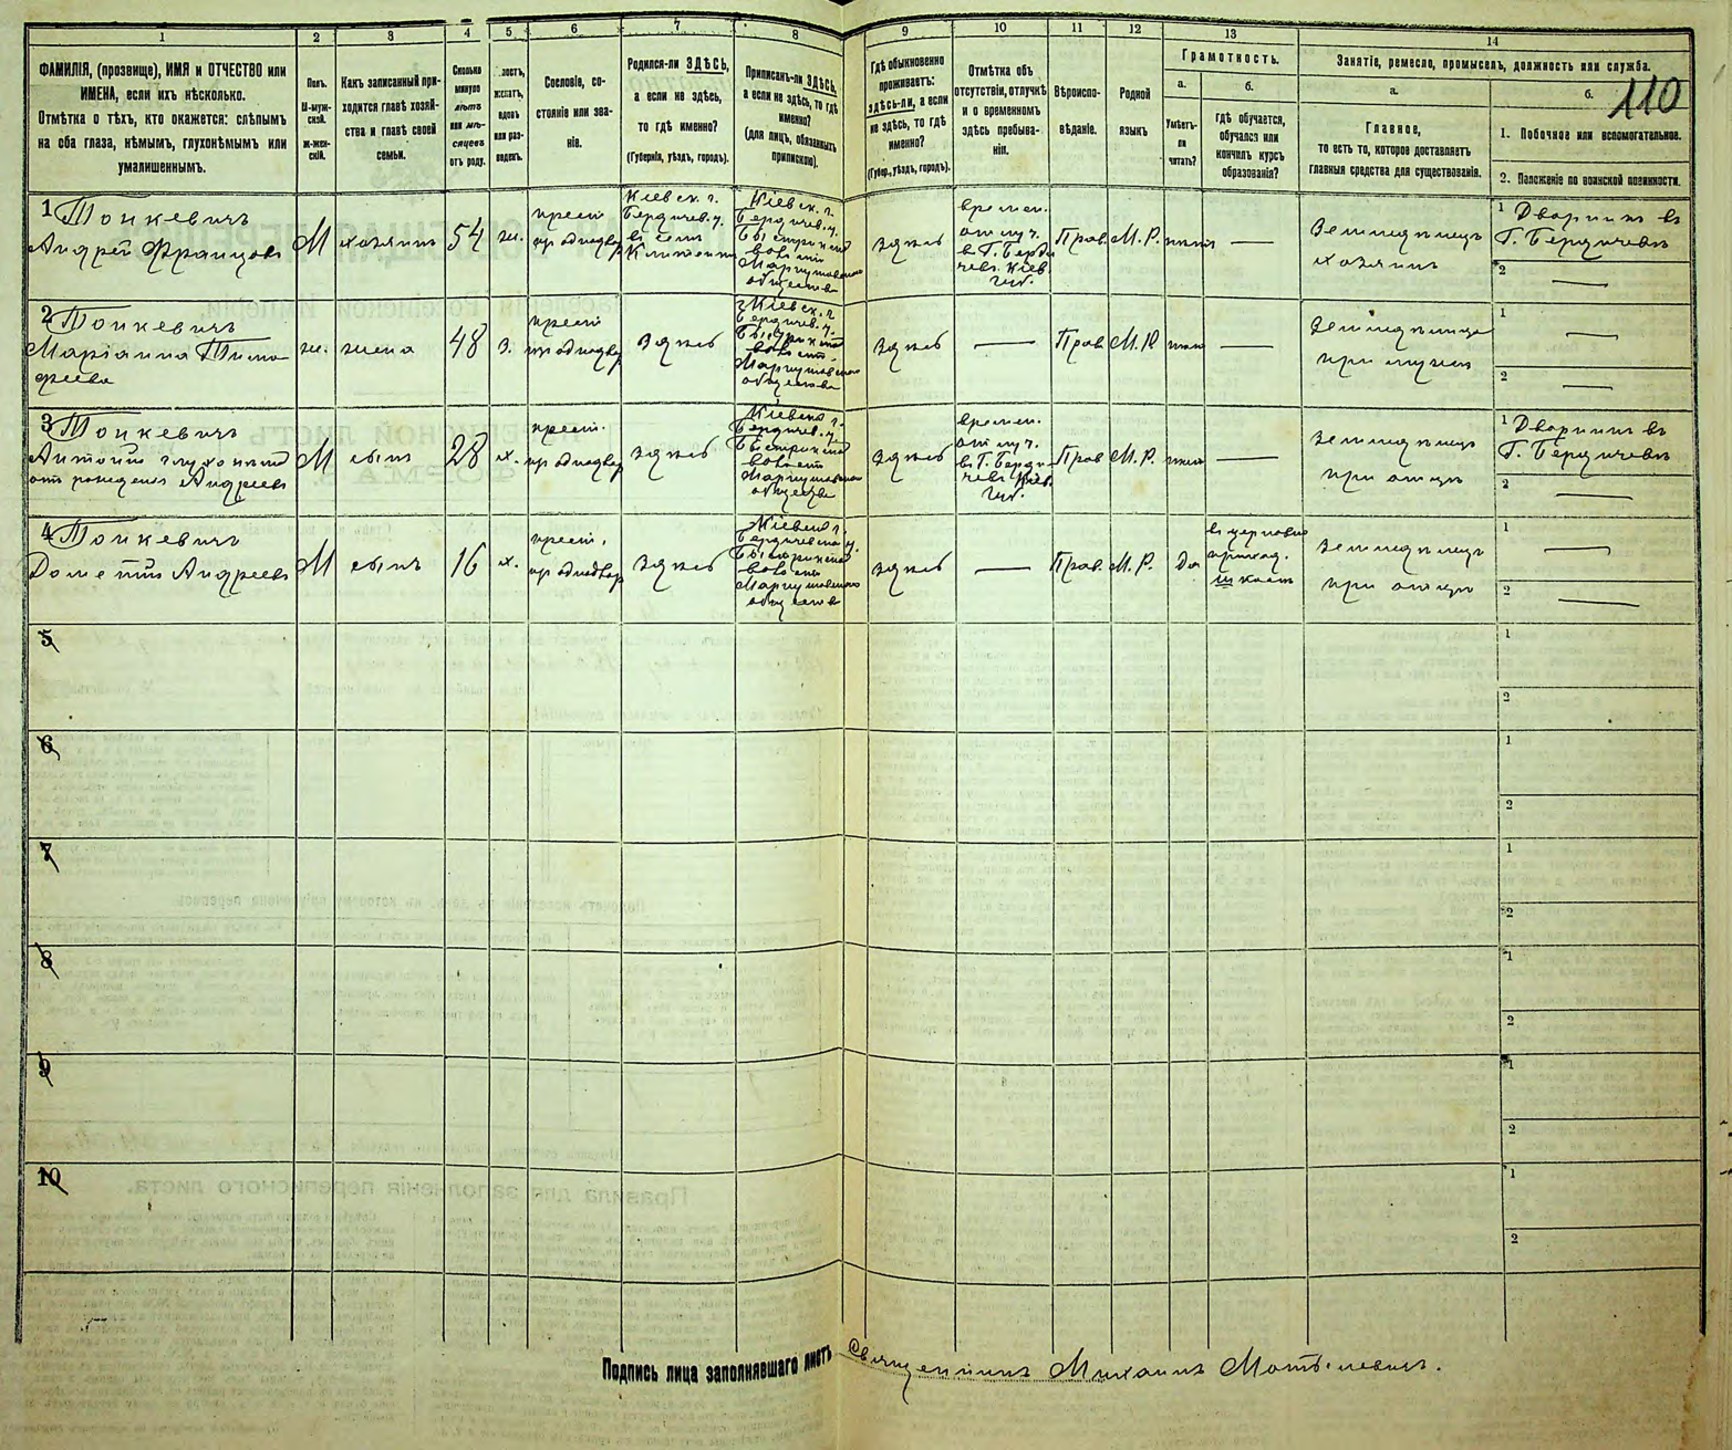 110
1
2
3
4
5.
6
7
8
9
10
11
12
13
14
ФАМИЛІЯ, (прозвище), ИМЯ и ОТЧЕСТВО или
ИМЕНА, если ихъ нѣсколько.
Отмѣтка о тѣхъ, кто окажется: слѣпымъ
на оба глаза, нѣмымъ, глухонѣмымъ или
умалишеннымъ.
Полъ.
М-муж-
ской.
Ж-жен-
скій.
Какъ записанный при-
ходится главѣ хозяй-
ства и главѣ своей
семьи.
Сколько
минуло
лѣтъ
или мѣ-
сяцевъ
отъ роду.
лостъ,
женатъ,
вдовъ
или раз-
веденъ.
Сословіе, со-
стояніе или зва-
ніе.
Родился-ли ЗДѢСЬ,
а если не здѣсь,
то гдѣ именно?
(Губернія, уѣздъ, городъ).
Приписанъ-ли ЗДѢСЬ,
а если не здѣсь, то гдѣ
именно?
(для лицъ, обязанныхъ
припискою).
Гдѣ обыкновенно
проживаетъ:
здѣсь-ли, а если
не здѣсь, то гдѣ
именно?
(Губер., уѣздъ, городъ).
Отмѣтка объ
отсутствіи, отлучкѣ
и о временномъ
здѣсь пребыва-
ніи.
Вѣроиспо-
вѣданіе.
Родной
языкъ
Грамотность.
а.
Умѣетъ-
ли
читать?
б.
гдѣ обучается,
обучался или
кончилъ курсъ
образованія?
Занятіе, ремесло, промыселъ, должность или служба.
а.
Главное,
то есть то, которое доставляетъ
главныя средства для существованія.
б.
1. Побочное или вспомогательное.
2. Положеніе по воинской повинности.
1 Тонкевичъ
Андрей Францовъ
М
хозяинъ
54
ж.
крест.
изъ однодвор
Кіевск. г.
Бердичев. у.
въ селѣ
Кіевск. г.
Бердичев. у.
волости
общества
здѣсь
времен.
отлуч.
в г. Берди
чевѣ Кіев.
губ.
Прав.
М.Р.
нѣтъ
—
Земледѣлецъ
хозяинъ
1 Дворникъ въ
г. Бердичевѣ
2 —
2 Тонкевичъ
Маріанна Тимо
феева
ж.
жена
48
з.
крест.
изъ однодвор
здѣсь
Кіевск. г.
Бердичев. у.
общества
здѣсь
—
Прав.
М.Р.
нѣтъ
—
Земледѣлица
при мужѣ
1 —
2 —
3 Тонкевичъ
Антонъ глухонѣмой
отъ рожденія Андреевъ
М
сынъ
28
х.
крест.
изъ однодвор
здѣсь
Бердичев. у.
волости
общества
здѣсь
времен.
отлуч.
в г. Берди
чевѣ Кіев.
губ.
Прав.
М.Р.
нѣтъ
—
Земледѣлецъ
при отцѣ
1 Дворникъ въ
г. Бердичевѣ
2 —
4 Тонкевичъ
Дометій Андреевъ
М
сынъ
16
х.
крест.
изъ однодвор
здѣсь
волости
общества
здѣсь
—
Прав.
М.Р.
Да
въ церковно
приход.
школѣ
Земледѣлецъ
при отцѣ
1 —
2 —
5
1
2
6
1
2
7
1
2
8
1
2
9
1
2
10
1
2
Подпись лица заполнявшаго листъ Священникъ Михаилъ